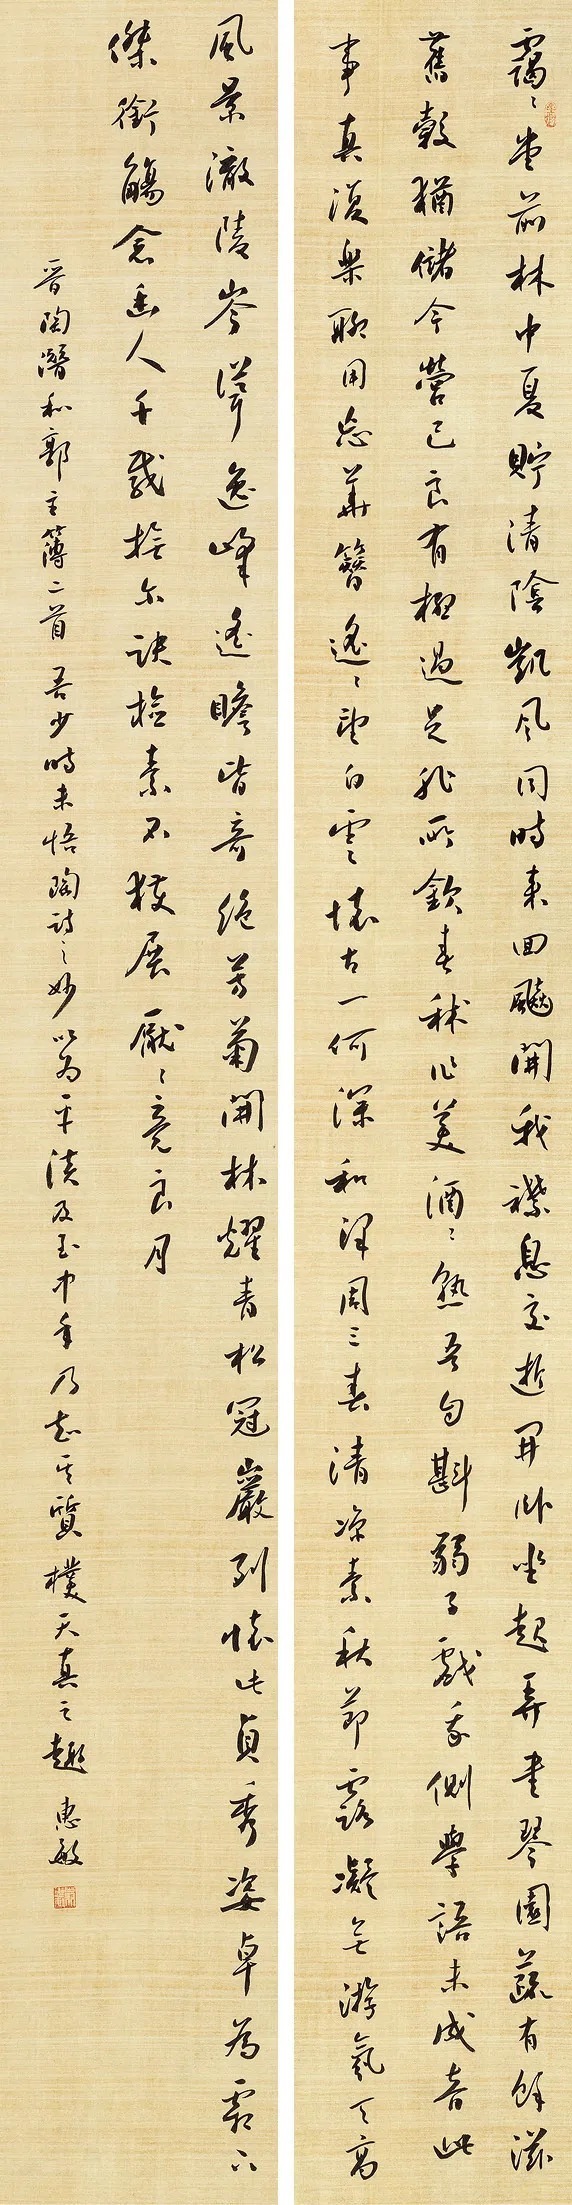 靄〻堂前林中夏貯清陰凱風因時來回飆開我襟息交遊閑臥坐起弄書琴園蔬有餘滋
舊穀猶儲今營己良有極過足非所欽舂秫作美酒〻熟吾自斟弱子戲我側學語未成音此
事真復樂聊用忘華簪遙〻望白雲懷古一何深和澤周三春清涼素秋節露凝無游氛天高
風景澈陵岑聳逸峰遙瞻皆奇絕芳菊開林耀青松冠巖列懷此貞秀姿卓為霜下
傑銜觴念幽人千載撫爾訣檢素不獲展厭〻竟良月
晉陶潛和郭主簿二首 吾少時未悟陶詩之妙以為平淡及至中年乃知其質樸天真之趣 惠敏